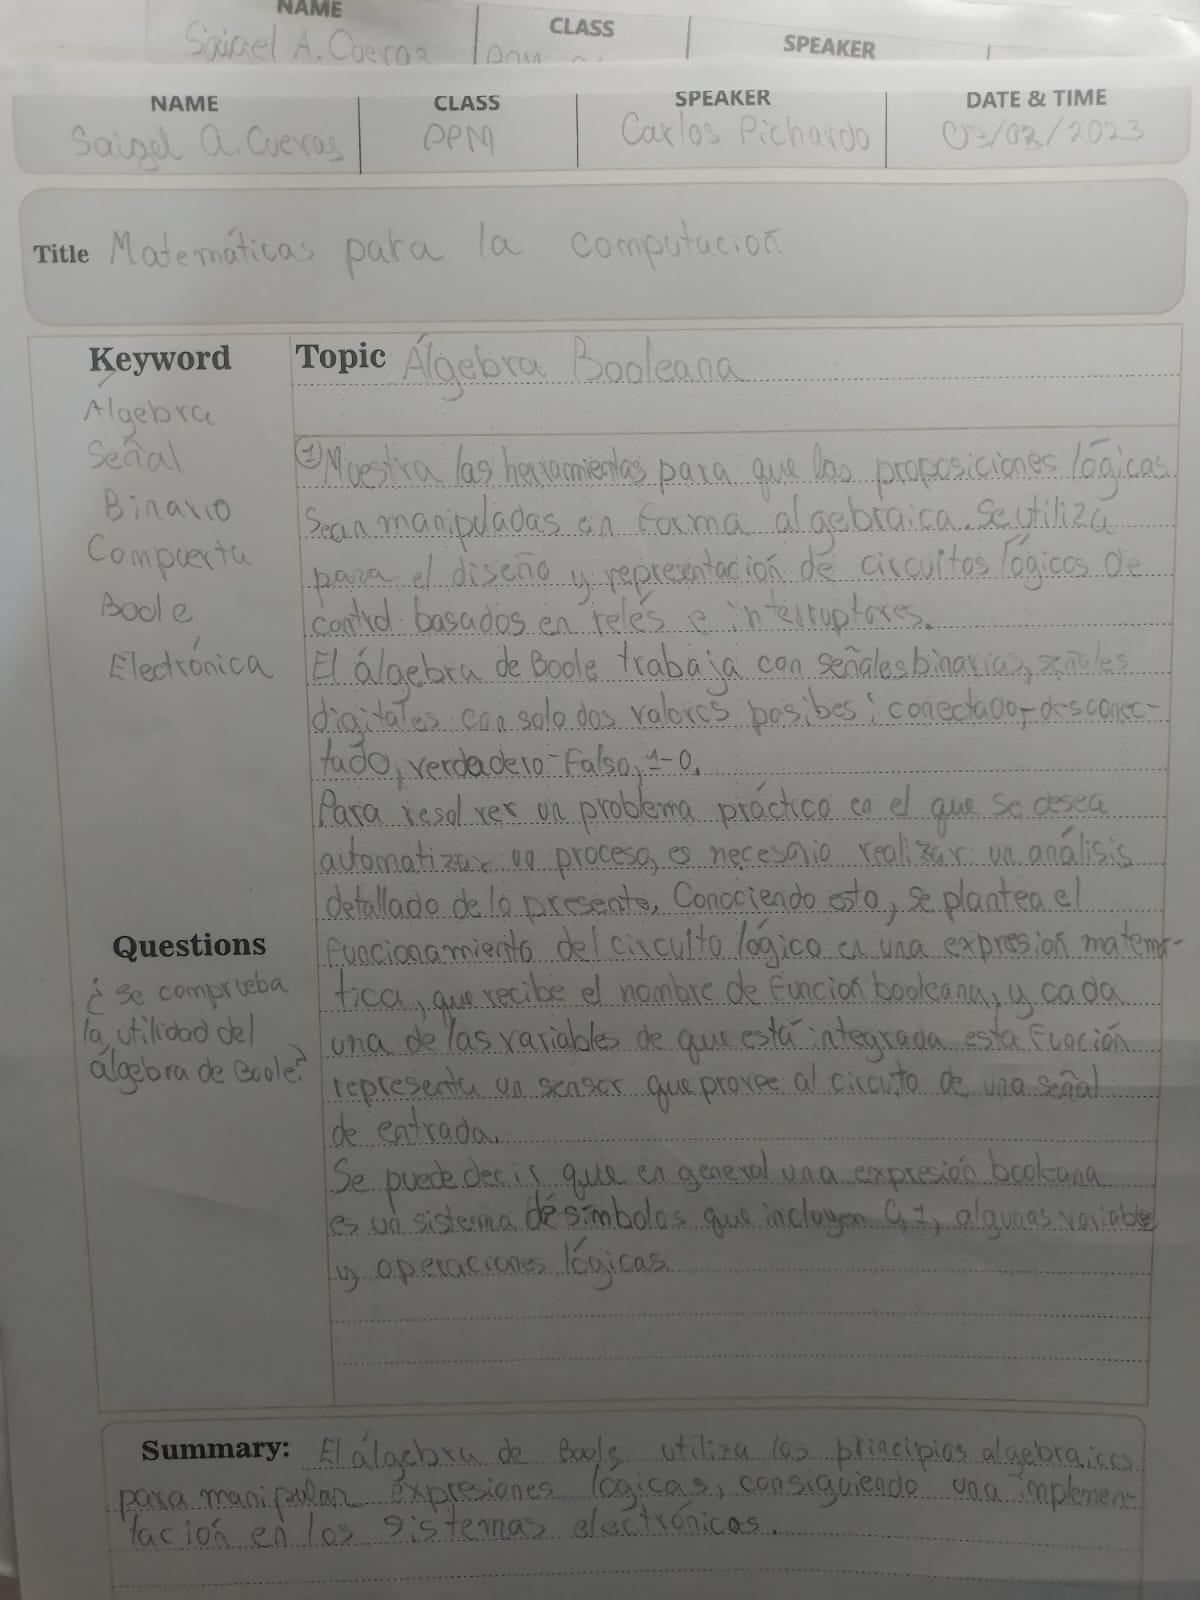 NAME CLASS SPEAKER
Saigel A. Cuevas
NAME CLASS SPEAKER DATE & TIME
Saigel A. Cuevas PPM Carlos Pichardo 03/03/2023
Title Matemáticas para la computación
Keyword Topic Álgebra Booleana
Algebra
Señal
Binario
Compuerta
Boole
Electrónica
① Muestra las herramientas para que las proposiciones lógicas
Sean manipuladas en forma algebraica. Se utiliza
para el diseño y representación de circuitos lógicos de
control basados en relés e interruptores.
El álgebra de Boole trabaja con señales binarias, señales
digitales con solo dos valores posibes: conectado-desconec-
tado, verdadero-Falso, 1-0.
Para resolver un problema práctico en el que se desea
automatizar un proceso, es necesario realizar un análisis
detallado de lo presente. Conociendo esto, se plantea el
funcionamiento del circuito lógico en una expresión matemá-
tica, que recibe el nombre de Función booleana, y cada
una de las variables de que está integrada esta Función
representa un sensor que provee al circuito de una señal
de entrada.
Se puede decir que en general una expresión booleana
es un sistema de símbolos que incluyen 0,1, algunas variables
y operaciones lógicas.
Questions
¿ Se comprueba
la utilidad del
álgebra de Boole?
Summary: El álgebra de Boole utiliza los principios algebraicos
para manipular expresiones lógicas, consiguiendo una implemen-
tación en los sistemas electrónicas.